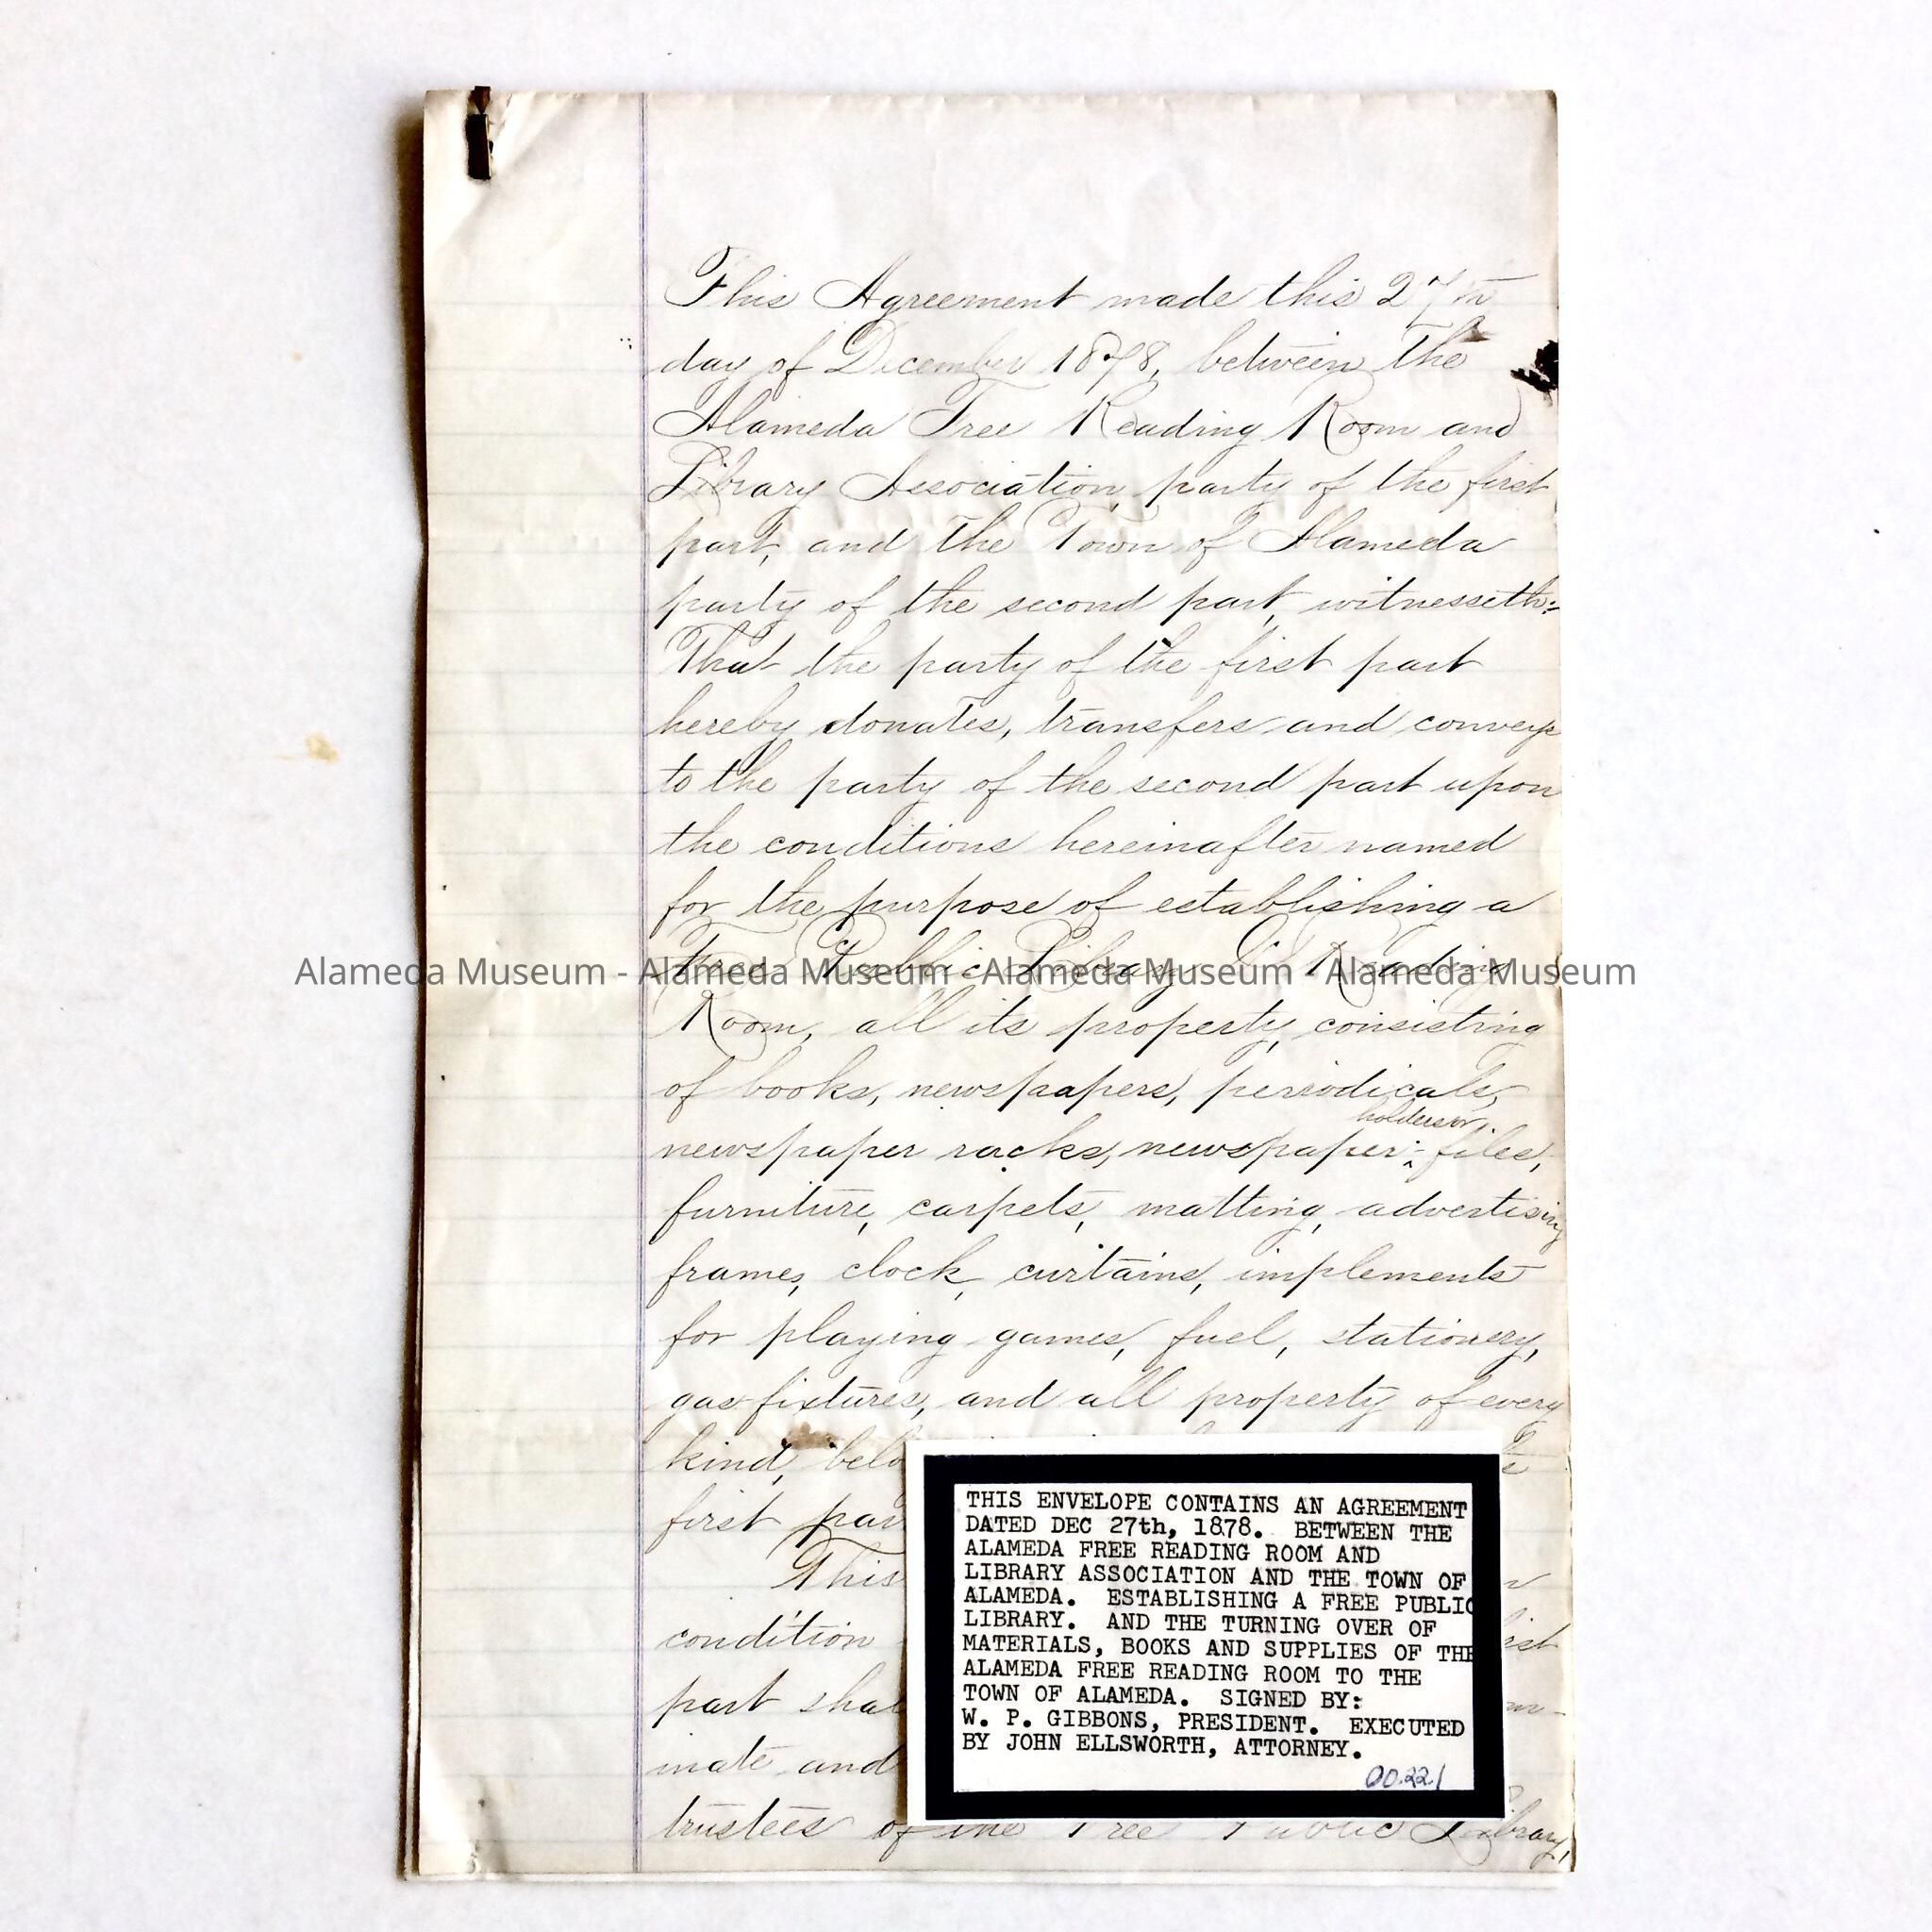 This Agreement made this 27th
day of December 1878, between the
Alameda Free Reading Room and
Library Association, party of the first
part, and the Town of Alameda
party of the second part, witnesseth:
That the party of the first part
hereby donates, transfers and conveys
to the party of the second part upon
the conditions hereinafter named
for the purpose of establishing a
Free Public Library and Reading
Alameda Museum - Alameda Museum - Alameda Museum - Alameda Museum
Room, all its property, consisting
of books, newspapers, periodicals,
holders or
newspaper racks, newspaper-files,
furniture, carpets, matting, advertising
frames, clock, curtains, implements
for playing games, fuel, stationery,
gas fixtures, and all property of every
kind, belo
first par
This
condition
part shal
inate and
trustees of the Free Public Library,
THIS ENVELOPE CONTAINS AN AGREEMENT
DATED DEC 27th, 1878. BETWEEN THE
ALAMEDA FREE READING ROOM AND
LIBRARY ASSOCIATION AND THE TOWN OF
ALAMEDA. ESTABLISHING A FREE PUBLIC
LIBRARY. AND THE TURNING OVER OF
MATERIALS, BOOKS AND SUPPLIES OF THE
ALAMEDA FREE READING ROOM TO THE
TOWN OF ALAMEDA. SIGNED BY:
W. P. GIBBONS, PRESIDENT. EXECUTED
BY JOHN ELLSWORTH, ATTORNEY.
00.221